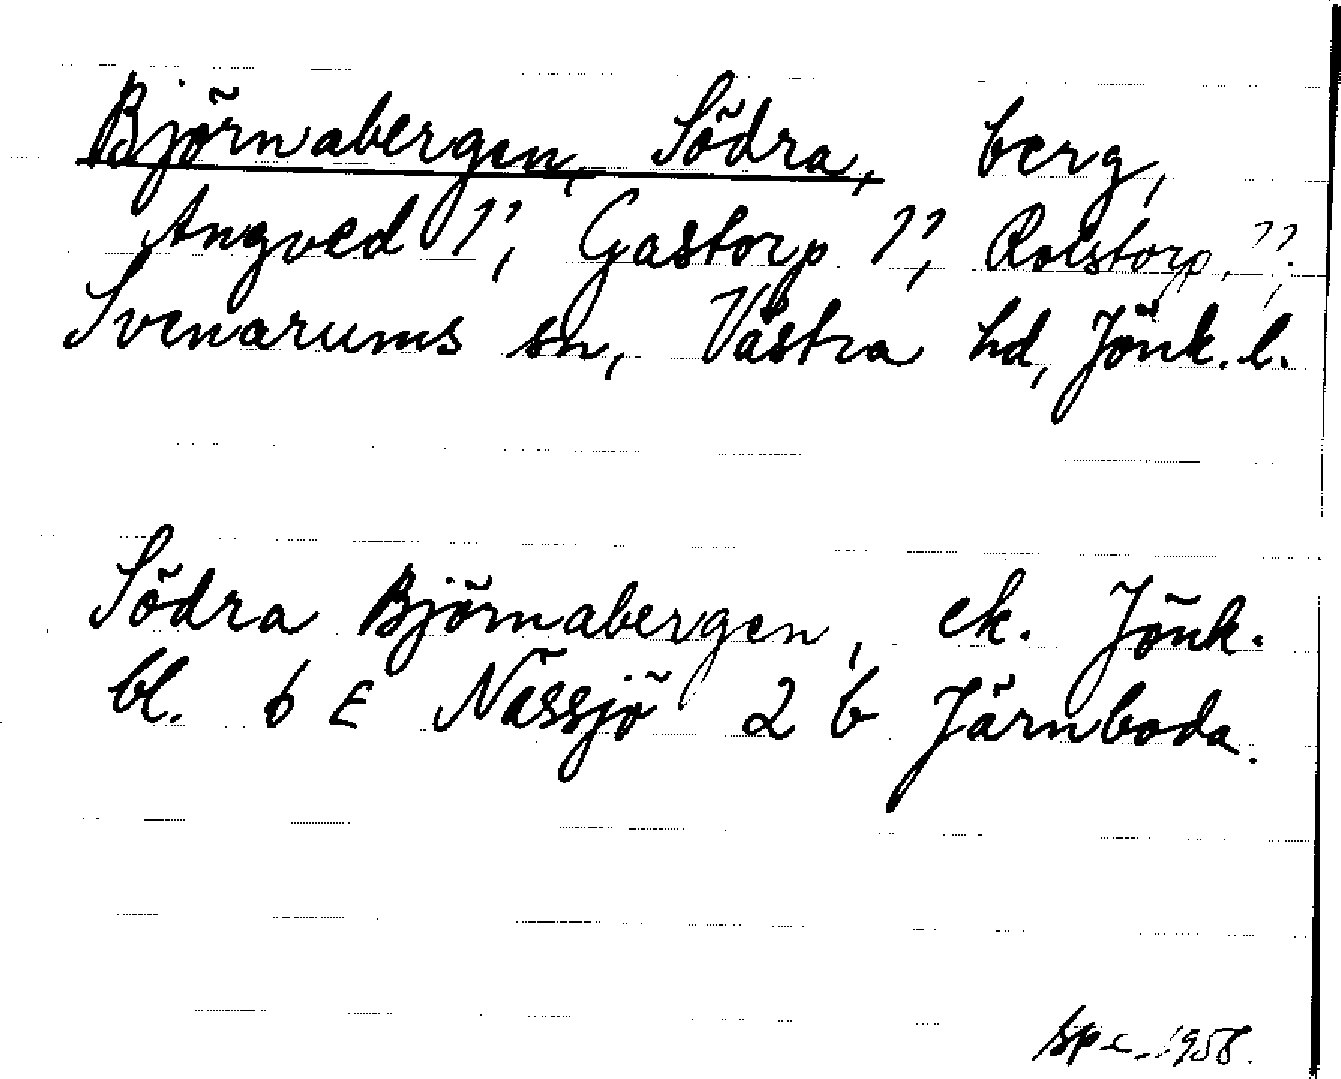 Björnabergen, Södra, berg,
Angved ??, Gastorp ??, Rolstorp, ??,
Svenarums sn, Västra hd, Jönk. l.
Södra Björnabergen, ek. Jönk.
bl. 6 E Nässjö 2 b Järnboda.
1958.